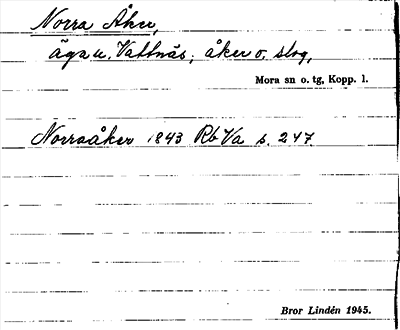 Norra Åker,
äga u. Vattnäs; åker o. slog,
Mora sn o. tg, Kopp. l.
Norraåker 1843 Rb Va s. 247.
Bror Lindén 1945.